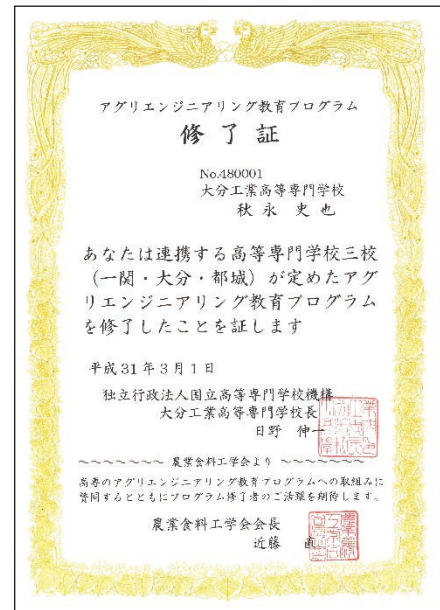 アグリエンジニアリング教育プログラム
修了証
No.480001
大分工業高等専門学校
秋永 史也
あなたは連携する高等専門学校三校
（一関・大分・都城）が定めたアグ
リエンジニアリング教育プログラム
を修了したことを証します
平成31年3月1日
独立行政法人国立高等専門学校機構
大分工業高等専門学校長
日野 伸一
～～～～～～～ 農業食料工学会より ～～～～～～～
高専のアグリエンジニアリング教育プログラムへの取組みに
賛同するとともにプログラム修了者のご活躍を期待します。
農業食料工学会会長
近藤 直